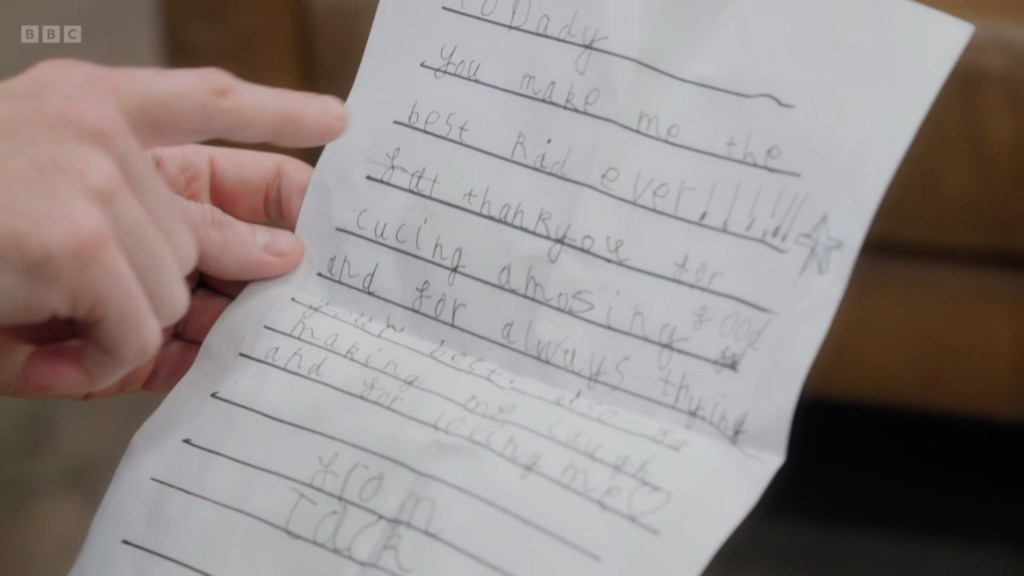 BBC
To Dady
you make me the
best kid ever!!!!!!
fat thankyou for
cucing amosing food
and for always thying
your best. also
making me laugh
and for loving me♡
from
Jack